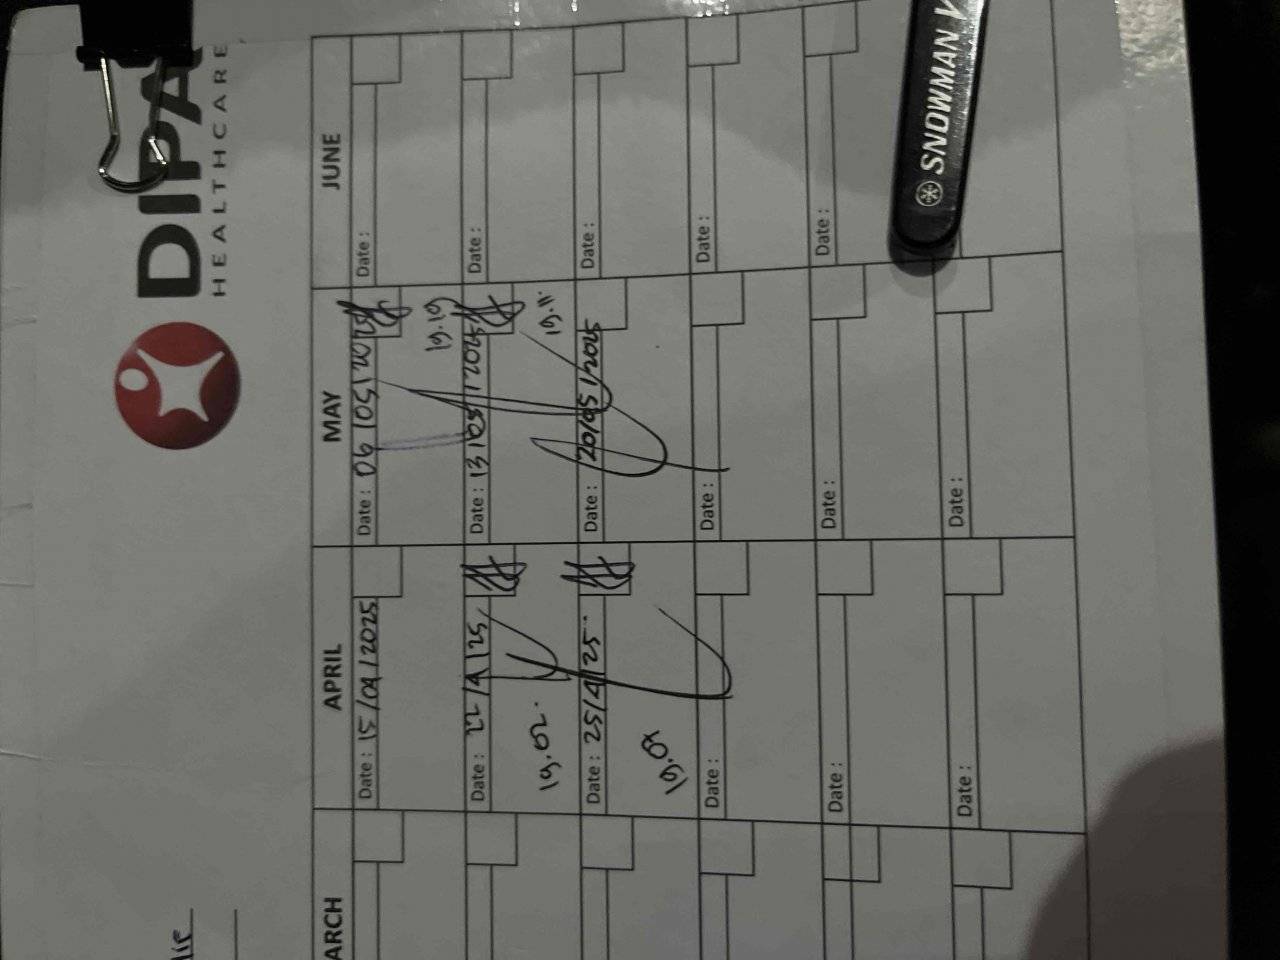 DIPA
HEALTHCARE
ARCH
APRIL
MAY
JUNE
Date : 15/04/2025
Date : 06/05/2025
Date :
19.19
Date : 22/4/25
Date : 13/05/2025
Date :
19.02.
19.11.
Date : 25/4/25.
Date : 20/05/2025
Date :
Date :
Date :
Date :
Date :
Date :
Date :
Date :
Date :
SNOWMAN